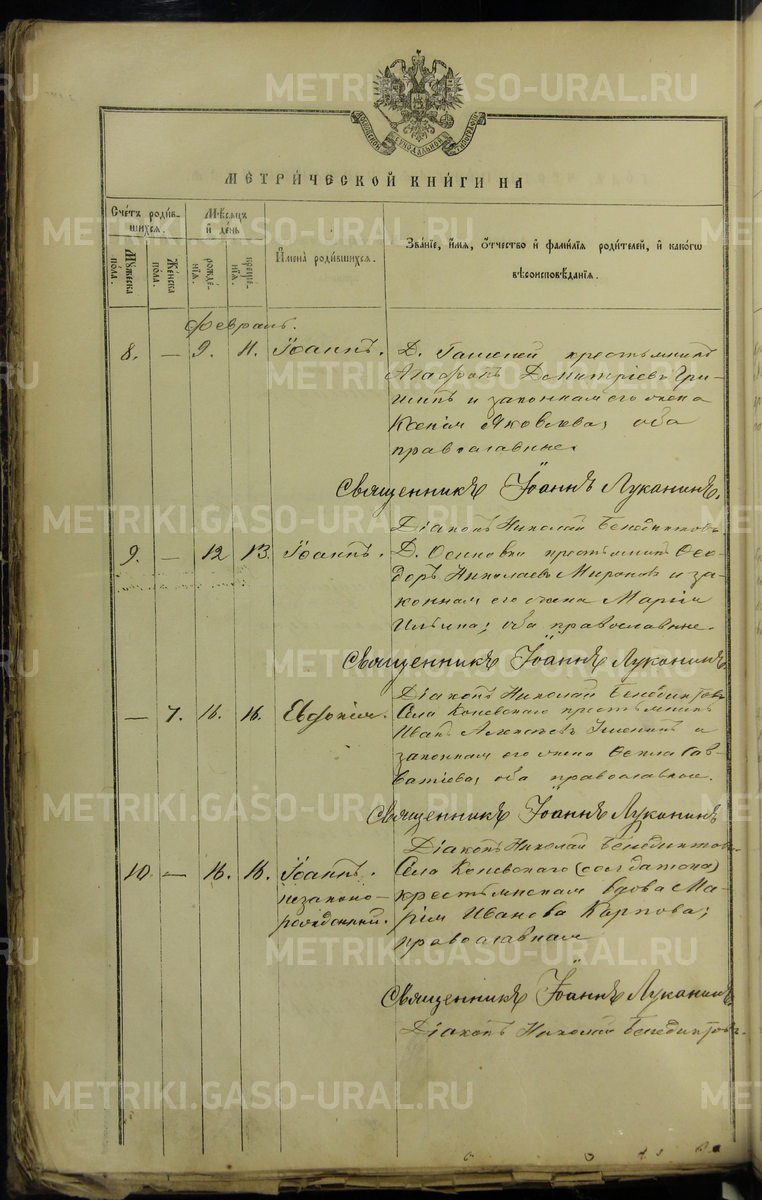 METRIKI.GASO-URAL.RU
МЕТРИ́ЧЕСКОЙ КНИ́ГИ НА
Сче́тъ роди́в-
шихся.
Мѣ́сяцъ
и де́нь
Мꙋ́жеска по́ла.
Же́нска по́ла.
рожде́-
нїѧ.
креще́-
нїѧ.
Имена̀ роди́вшихся.
Зва́нїе, и́мя, ѻ́тчество и фами́лїя роди́телей, и како́гѡ
вѣроисповѣ́данїѧ.
Февраль.
8. — 9. 11. Іоаннъ. Д. крестьянинъ
Агафонъ Дмитріевъ Гри-
шинъ и законная его жена
Ксенія Яковлева, оба
православные.
Священникъ Іоаннъ Луканинъ.
Діаконъ Николай Бенедиктовъ
9. — 12 13. Іоаннъ. Д. Осиновки крестьянинъ Ѳео-
доръ Николаевъ Мироновъ и за-
конная его жена Марія
Ильина; оба православные.
Священникъ Іоаннъ Луканинъ
Діаконъ Николай Бенедиктовъ
— 7. 16. 16. Евдокія. Села Коневскаго крестьянинъ
Иванъ Алексѣевъ и
законная его жена Ѳекла Сав-
ватіева, оба православные.
Священникъ Іоаннъ Луканинъ
Діаконъ Николай Бенедиктовъ
10. — 16. 16. Іоаннъ. Села Коневскаго (солдатка)
незаконно- крестьянская вдова Ма-
рожденный. рія Иванова Карпова;
православная
Священникъ Іоаннъ Луканинъ
Діаконъ Николай Бенедиктовъ.